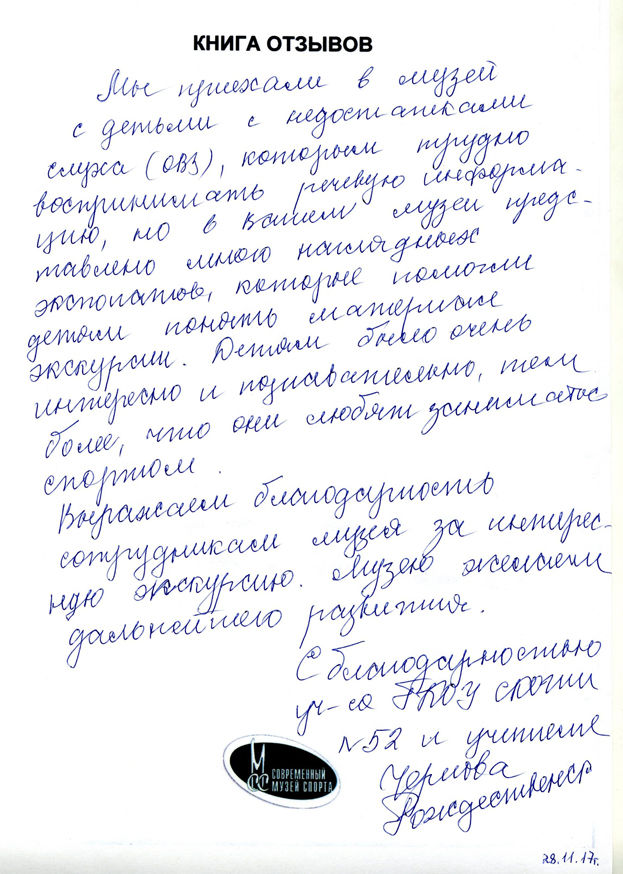 КНИГА ОТЗЫВОВ
Мы приехали в музей
с детьми с недостатками
слуха (ОВЗ), которым трудно
воспринимать речевую информа-
цию, но в вашем музеи предс-
тавлено много наглядных
экспонатов, которые помогли
детям понять материал
экскурсии. Детям было очень
интересно и познавательно, тем
более, что они любят заниматься
спортом.
Выражаем благодарность
сотрудникам музея за интерес-
ную экскурсию. Музею желаем
дальнейшего развития.
С благодарностью
уч-ся ГКОУ СКОШИ
№52 и учителя
Чернова
Рождественская
СОВРЕМЕННЫЙ
МУЗЕЙ СПОРТА
28.11.17г.